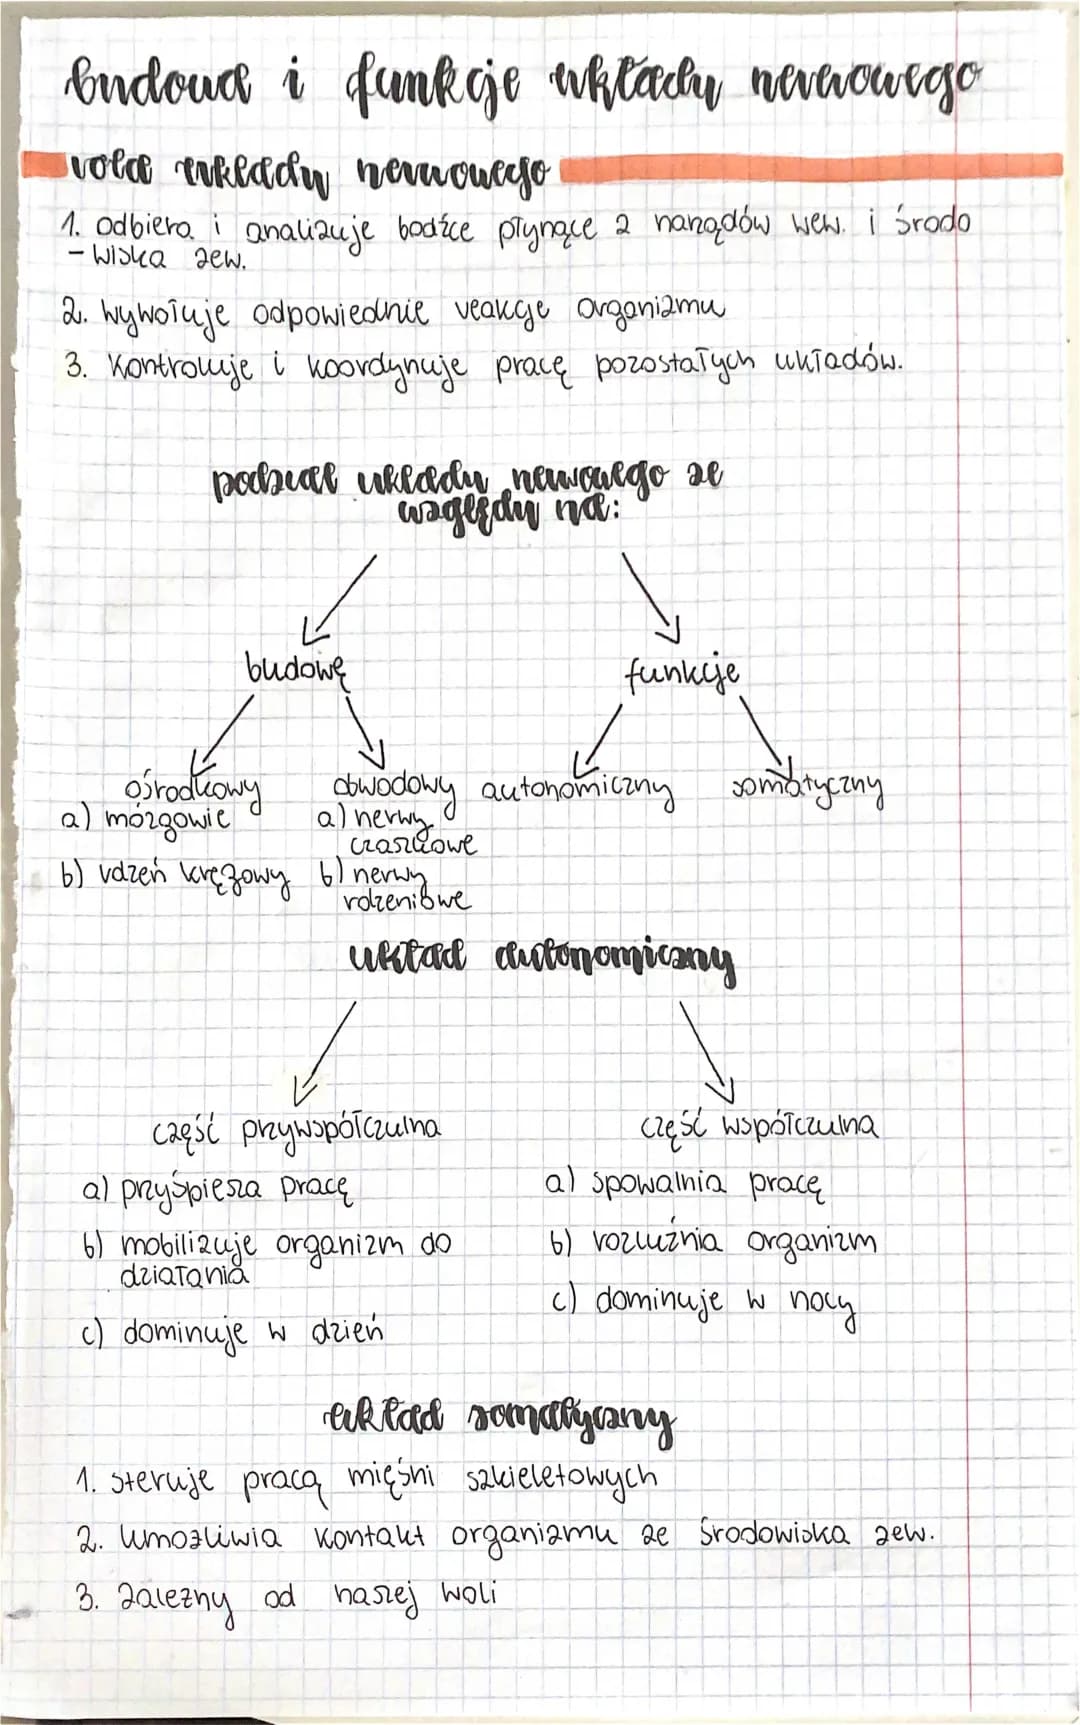 budowa i funkcje układu nerwowego
rola układu nerwowego
1. odbiera i analizuje bodźce płynące z narządów wew. i środo
- wiska zew.
2. wywołuje odpowiednie reakcje organizmu
3. Kontroluje i koordynuje pracę pozostałych układów.
podział układu nerwowego ze
względu na:
budowę funkcje
ośrodkowy obwodowy autonomiczny somatyczny
a) mózgowie a) nerwy
czaszkowe
b) rdzeń kręgowy b) nerwy
rdzeniowe
układ autonomiczny
część przywspółczulna część współczulna
a) przyśpiesza pracę a) spowalnia pracę
b) mobilizuje organizm do b) rozluźnia organizm
działania
c) dominuje w dzień c) dominuje w nocy
układ somatyczny
1. steruje pracą mięśni szkieletowych
2. umożliwia kontakt organizmu ze środowiska zew.
3. zależny od naszej woli